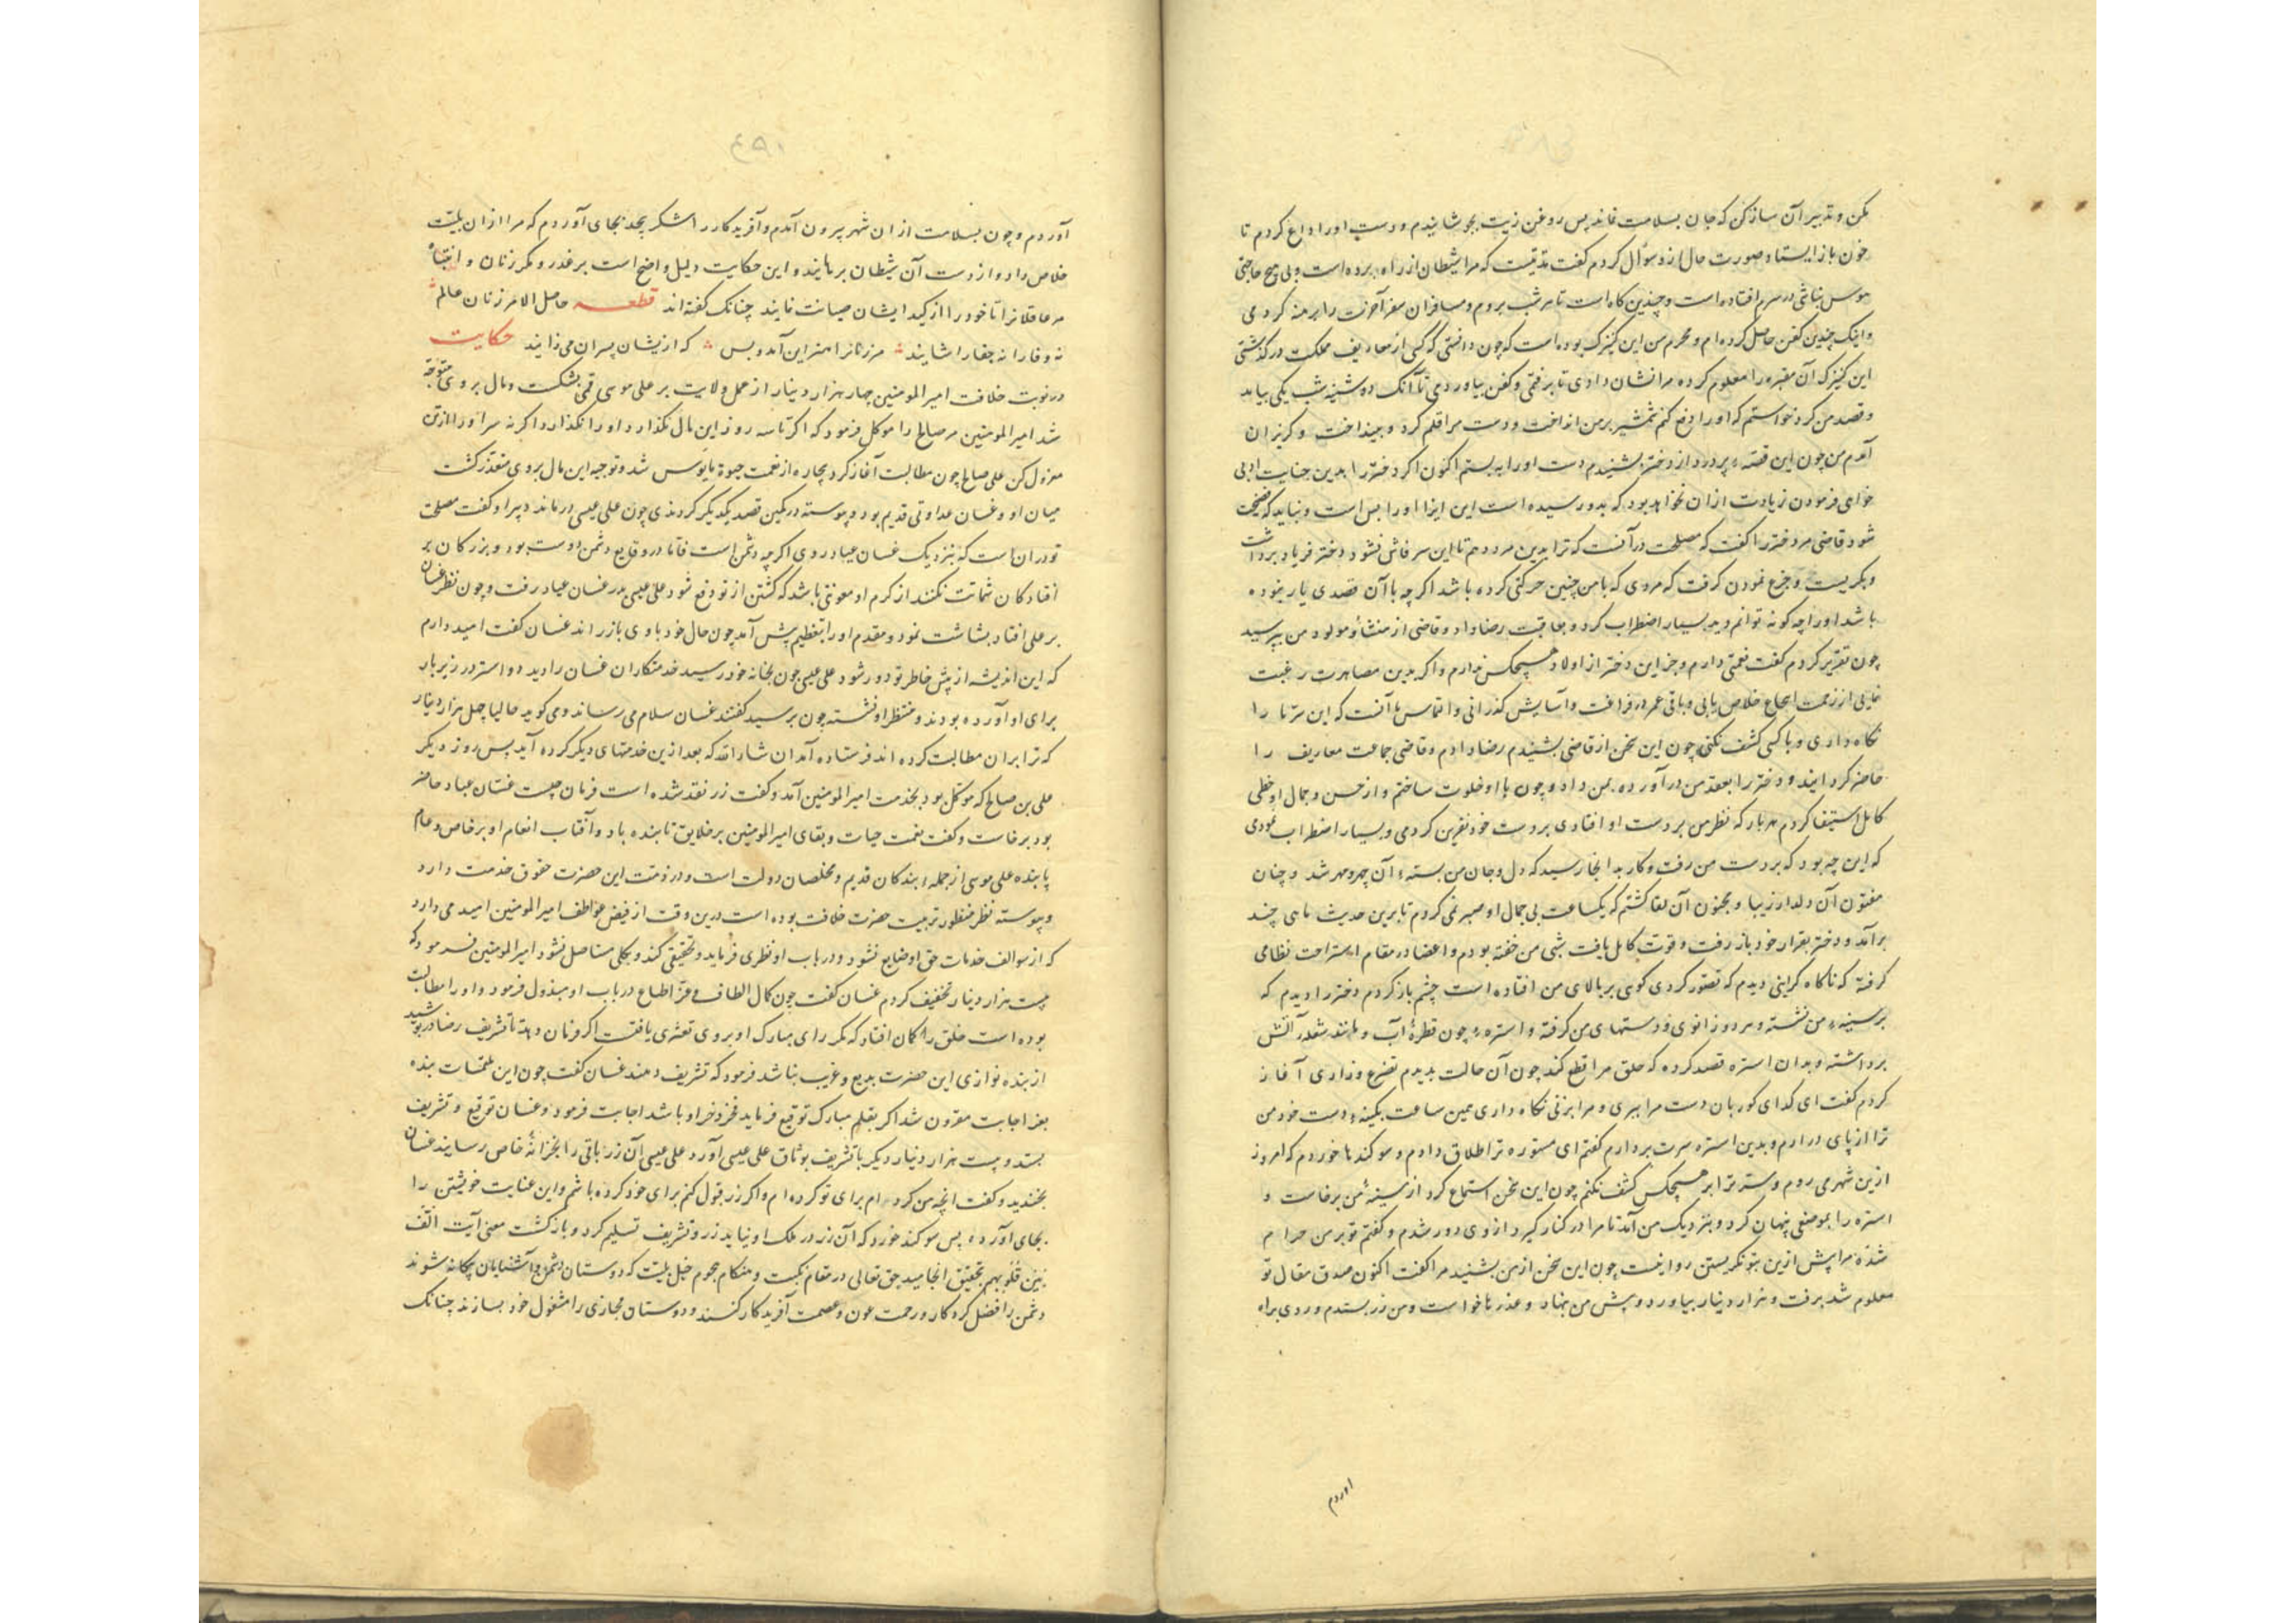 بکن و تدبیر آن ساز کن که جان بسلامت بماند پس روغن زیت بجوشانیدم و دست او را داغ کردم تا
خون باز ایستاد و صورت حال ازو سؤال کردم گفت مدتیست که مرا شیطان از راه برده است و بی هیچ حاجتی
هوس نباشی در سرم افتاده است و چندین گاه است تا هر شب بروم و مسافران سفر آخرت را برهنه کردمی
و اینک چندین کفن حاصل کرده‌ام و محرم من این کنیزک بوده است که چون دانستی که کسی از معاریف مملکت در گذشتی
این کنیزک آن مقبره را معلوم کرده مرا نشان دادی تا برفتمی و کفن بیاوردمی تا آنک دوشینه شب یکی بیامد
و قصد من کرد خواستم که او را دفع کنم شمشیر بر من انداخت و دست مرا قلم کرد و بینداخت و گریزان
آمدم من چون این قصهٔ پر درد از دختر بشنیدم دست او را ببستم اکنون اگر دختر را بدین جنایت ادبی
خوای فرمودن زیادت ازان نخواهد بود که بدو رسیده است این ایذا او را بس است و نباید که فضیحت
شود قاضی مر دختر را گفت که مصلحت در آنست که ترا بدین مرد دهم تا این سر فاش نشود دختر فریاد برداشت
و بگریست و جزع نمودن گرفت که مردی که با من چنین حرکتی کرده باشد اگر چه با آن قصدی یار نبوده
باشد او را چه گونه توانم دید بسیار اضطراب کرد و بعاقبت رضا داد و قاضی از منشأ و مولود من بپرسید
چون تقریر کردم گفت نعمتی دارم و جز این دختر از اولاد هیچکس ندارم و اگر بدین مصاهرت رغبت
نمایی از زحمت احتیاج خلاص یابی و باقی عمر در فراغت و آسایش گذرانی و التماس ما آنست که این سر ما را
نگاه داری و با کسی کشف نکنی چون این سخن از قاضی بشنیدم رضا دادم و قاضی جماعت معاریف را
حاضر گردانید و دختر را بعقد من در آورده بمن داد و چون با او خلوت ساختم و از حسن و جمال او حظی
کامل استیفا کردم هر بار که نظر من بر دست او افتادی بر دست خود نفرین کردمی و بسیار اضطراب نمودمی
که این چه بود که بر دست من رفت و کار بدانجا رسید که دل و جان من بستهٔ آن چهر و مهر شد و چنان
مفتون آن دلدار زیبا و مجنون آن لقا گشتم که یکساعت بی جمال او صبر نمی کردم تا برین حدیث ماهی چند
برآمد و دختر بقرار خود باز رفت و قوت کامل یافت شبی من خفته بودم و اعضا در مقام استراحت نظامی
گرفته که ناگاه گرانیی دیدم که تصور کردی کوهی بر بالای من افتاده است چشم باز کردم دختر را دیدم که
بر سینهٔ من نشسته و هر دو زانوی و دستهای من گرفته و استرهٔ چون قطرهٔ آب و مانند شعلهٔ آتش
برداشته و بدان استره قصد کرده که حلق مرا قطع کند چون آن حالت بدیدم تضرع و زاری آغاز
کردم گفت ای گدای کور بان دست مرا ببری و مرا بزنی نگاه داری همین ساعت بکینهٔ دست خود من
ترا از پای در آرم و بدین استره سرت بردارم گفتم ای مستوره ترا طلاق دادم و سوگندها خوردم که امروز
ازین شهر می روم و ستر ترا بر هیچکس کشف نکنم چون این سخن استماع کرد از سینهٔ من برخاست و
استره را بموضعی پنهان کرد و بنزدیک من آمد تا مرا در کنار گیرد از وی دور شدم و گفتم تو بر من حرام
شدهٔ مرا پیش ازین بتو نگریستن روا نیست چون این سخن از من بشنید مرا گفت اکنون صدق مقال تو
معلوم شد برفت و هزار دینار بیاورد و پیش من نهاد و عذرها خواست و من زر بستدم و روی براه
اوردم
٤٩٠
آوردم و چون بسلامت ازان شهر بیرون آمدم و آفریدگار را شکر بیحد بجای آوردم که مرا ازان بلیت
خلاص داد و از دست آن شیطان برهانید و این حکایت دلیل واضح است بر غدر و مکر زنان و انتباه
مر عاقلانرا تا خود را از کید ایشان صیانت نمایند چنانک گفته اند قطعه حاصل الامر زنان عالم
نه وفا را نه جفا را شایند مر زنانرا هنر این آمد و بس که ازیشان پسران می زایند حکایت
در نوبت خلافت امیر المومنین چهار هزار دینار از عمل ولایت بر علی موسی قمی بشکست و مال بروی متوجه
شد امیر المومنین مر صالح را موکل فرمود که اگر تا سه روز این مال نگذارد او را نگذارد و اگر نه سر او را از تن
معزول کن علی صالح چون مطالبت آغاز کرد بیچاره از نعمت حیوة مایوس شد و توجیه این مال بروی متعذر گشت
میان او و غسان عداوتی قدیم بود و پیوسته در کمین قصد یکدیگر کردندی چون علی عیسی درماند دبیر او گفت مصلحت
تو دران است که بنزدیک غسان عباد روی اگر چه دشمن است فاما در وقایع دشمن دوست بود و بزرگان بر
افتادگان شماتت نکنند از کرم او معونتی باشد که کشتن از تو دفع شود علی عیسی بدر غسان عباد رفت و چون نظر غسان
بر علی افتاد بشاشت نمود و مقدم او را بتعظیم پیش آمد چون حال خود با وی باز راند غسان گفت امید دارم
که این اندیشه از پیش خاطر تو دور شود علی عیسی چون بخانه خود رسید خدمتکاران غسان را دید دو استر در زیر بار
برای او آورده بودند و منتظر او نشسته چون برسید گفتند غسان سلام می رساند و می گوید حالیا چهل هزار دینار
که ترا بران مطالبت کرده اند فرستاده آمد ان شاء الله که بعد ازین خدمتهای دیگر کرده آید پس روز دیگر
علی بن صالح که موکل بود بخدمت امیر المومنین آمد و گفت زر نقد شده است فرمان چیست غسان عباد حاضر
بود برخاست و گفت نعمت حیات و بقای امیر المومنین بر خلایق تابنده باد و آفتاب انعام او بر خاص و عام
پاینده علی موسی از جملهٔ بندگان قدیم و مخلصان دولت است و در ذمت این حضرت حقوق خدمت دارد
و پیوسته نظر منظور تربیت حضرت خلافت بوده است درین وقت از فیض عواطف امیر المومنین امید می دارد
که از سوالف خدمات حق او ضایع نشود و در باب او نظری فرماید و تخفیفی کند و بکلی مستاصل نشود امیر المومنین فرمود که
بیست هزار دینار تخفیف کردم غسان گفت چون کمال الطاف و عز اطباع در باب او مبذول فرمود و او را مطالبت
بوده است خلق را گمان افتاد که مگر رای مبارک او بروی تغیری یافت اگر فرمان دهد تا تشریف رضا در پوشید
از بنده نوازی این حضرت بدیع و غریب نباشد فرمود که تشریف دهند غسان گفت چون این ملتمسات بنده
بعز اجابت مقرون شد اگر بقلم مبارک توقیع فرماید فخر و ذخر او باشد اجابت فرمود و غسان توقیع و تشریف
بستد و بیست هزار دینار دیگر با تشریف بوثاق علی عیسی آورد علی عیسی آن زر باقی را بخزانهٔ خاص رسانید غسان
بخندید و گفت انچه من کرده‌ام برای تو کرده‌ام و اگر زر قبول کنم برای خود کرده باشم و این عنایت خویشتن را
بجای آورده پس سوگند خورد که آن زر در ملک او نیاید زر و تشریف تسلیم کرد و بازگشت معنی آیت الف
بین قلوبهم بتحقیق انجامید حق تعالی در مقام نکبت و هنگام هجوم خیل بلیت که دوستان دشمن و آشنایان بیگانه شوند
دشمن را فضل کردگار و رحمت عون و عصمت آفریدگار کنند و دوستان مجازی را مشغول خود بسازند چنانک